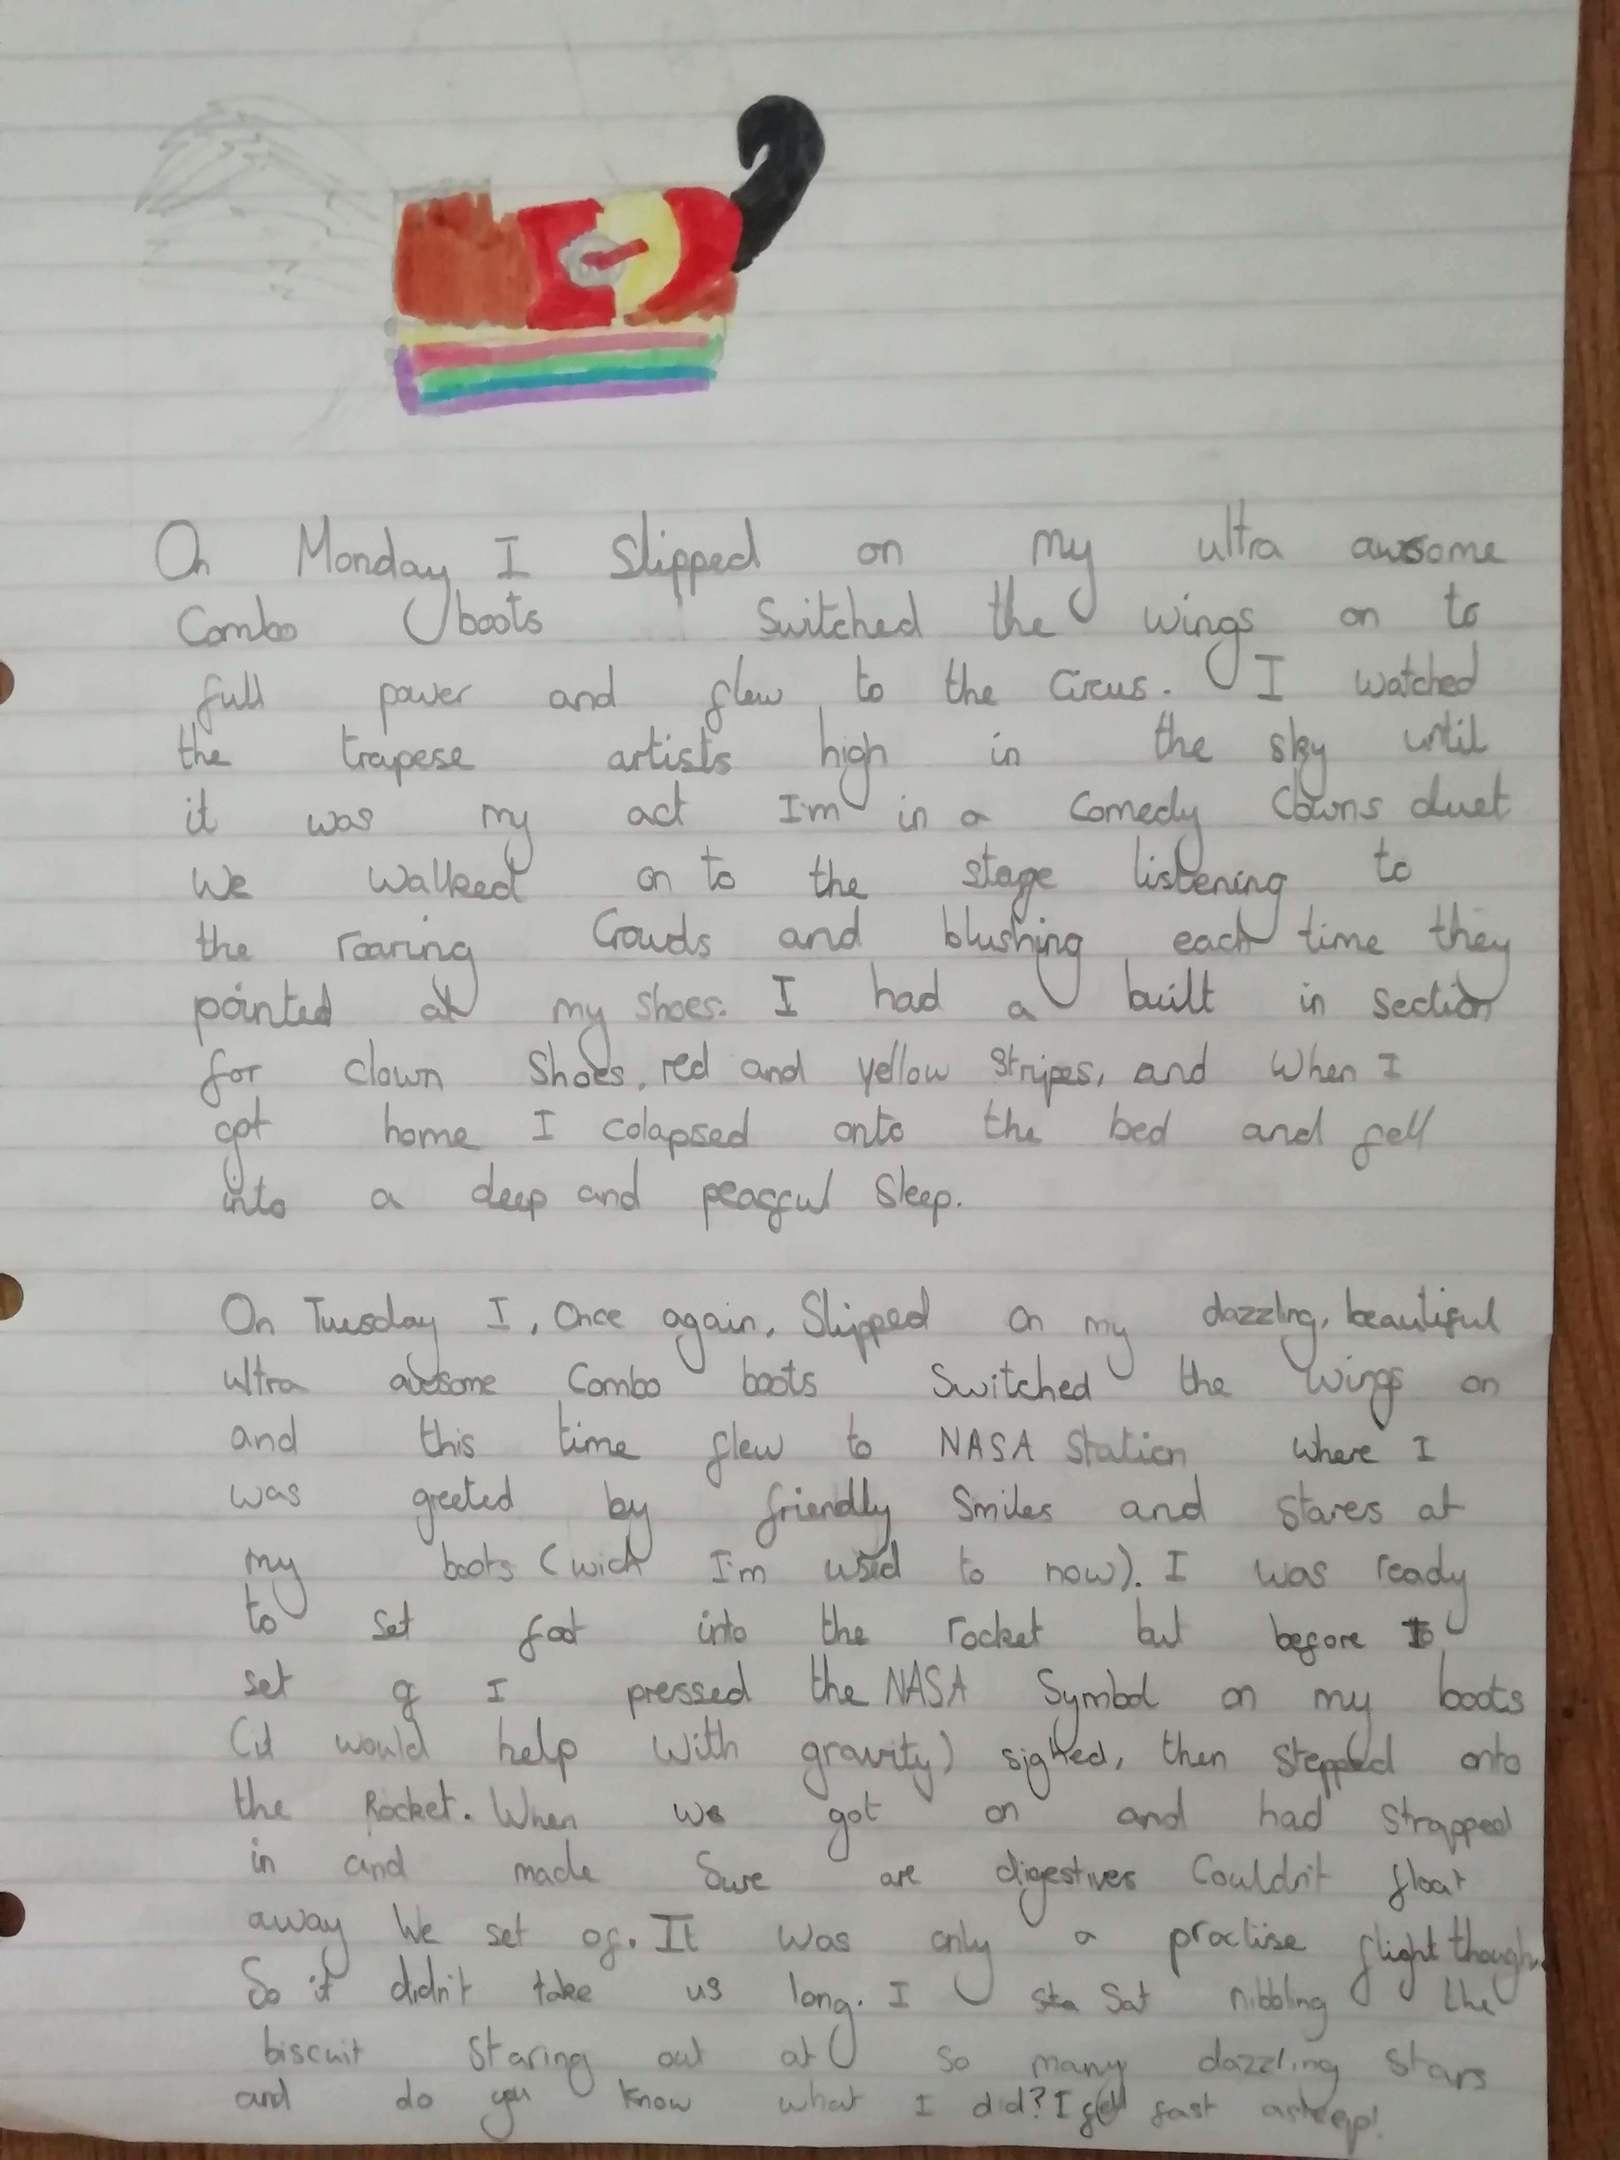 On Monday I Slipped on my ultra awsome
Combo boots Switched the wings on to
full power and flew to the Circus. I watched
the trapese artists high in the sky until
it was my act I'm in a Comedy Clowns duet
We walked on to the stage listening to
the roaring Crowds and blushing each time they
pointed at my shoes. I had a built in section
for clown shoes, red and yellow stripes, and when I
got home I colapsed onto the bed and fell
into a deep and peacful sleep.
On Tuesday I, Once again, Slipped on my dazzling, beautiful
ultra awesome Combo boots Switched the wings on
and this time flew to NASA Station where I
was greeted by friendly Smiles and stares at
my boots (wich I'm used to now). I was ready
to set foot into the rocket but before I
set of I pressed the NASA Symbol on my boots
(it would help with gravity) sighed, then stepped onto
the Rocket. When we got on and had strapped
in and made Sure are digestives Couldn't float
away We set of. It was only a practise flight though.
So it didn't take us long. I sta Sat nibbling the
biscuit Staring out at so many dazzling stars
and do you know what I did? I fell fast asleep!